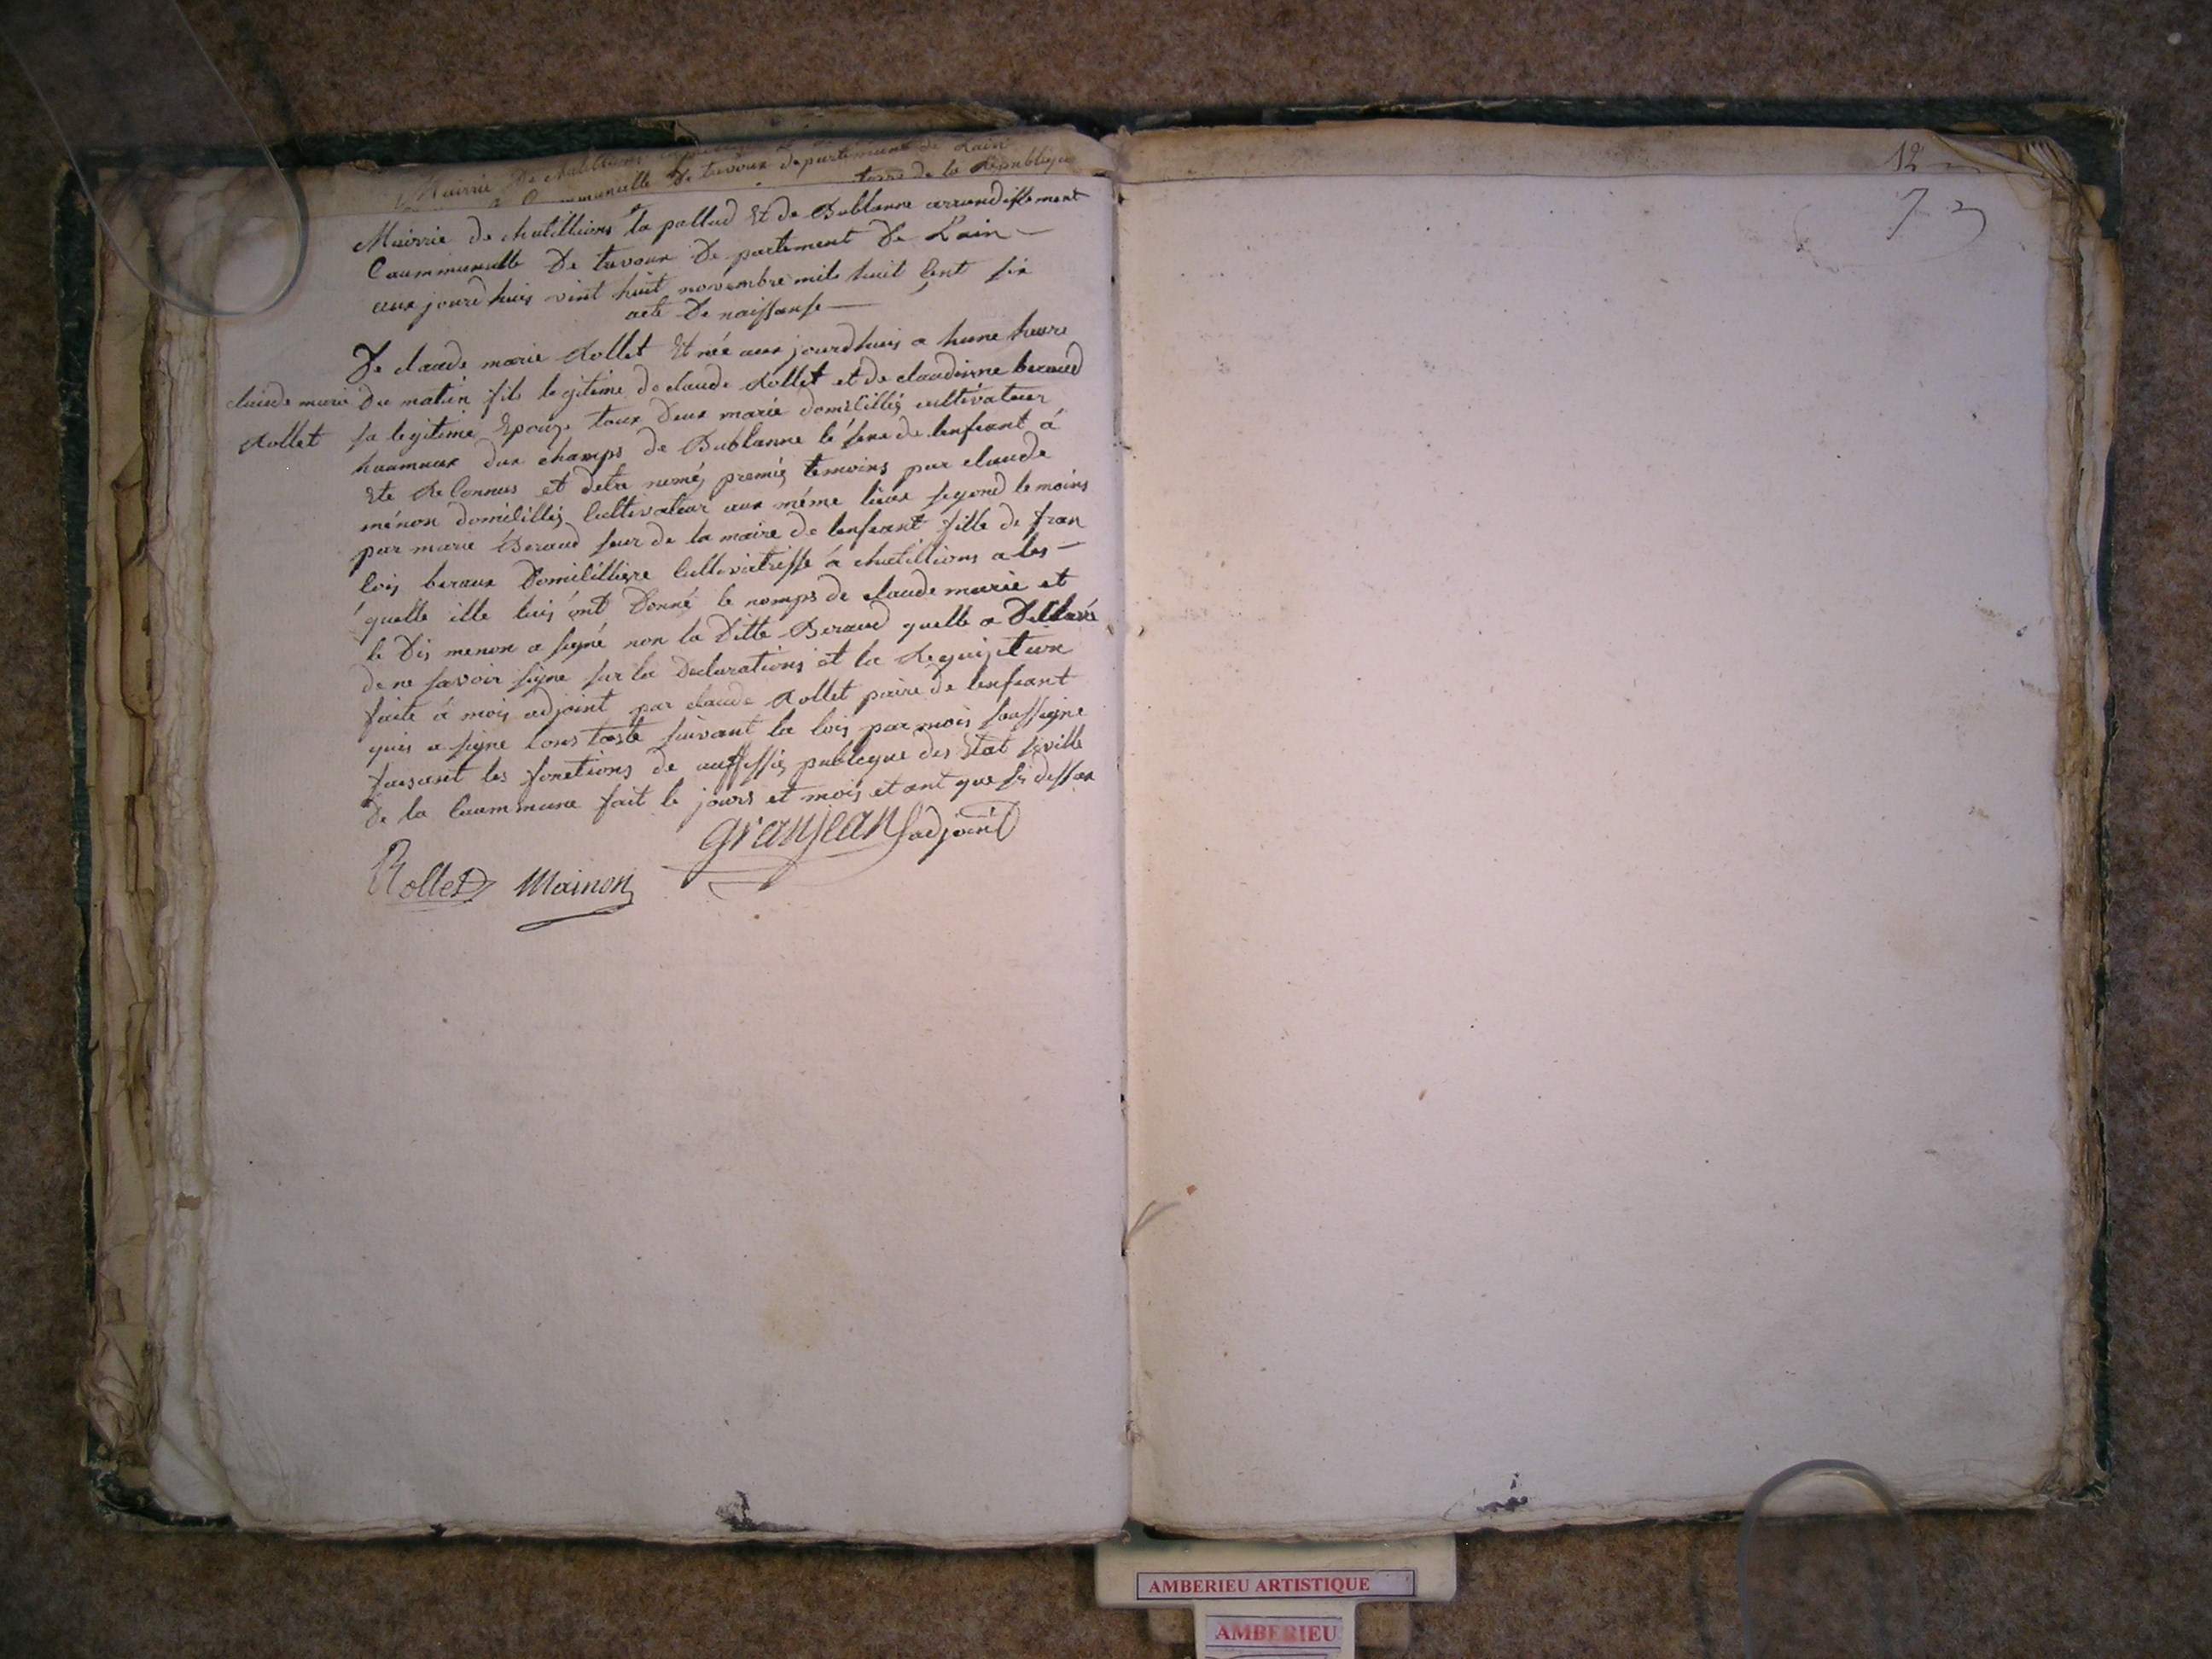 Mairrie De chatillions
Communelle De trevoux departement de Lain
de la Republique
Mairrie de chatillions la pallud Et de Bublanne arrondissement
Coummunelle De trevoux De partement De L'ain
aux jourdhuis vint huit novembre mils huit Cent six
acte De naissanse
De claude marie Rollet Et née aux jourdhuis a hune heure
claude marie
Rollet
Du matin fils legitime de claude Rollet et de claudinne beraud
sa legitime Epouze tous Deux marié domicilliés cultivateur
haumaux dux champs de Bublanne le sexe de lenfeant á
Eté Reconnus et detre male premiés temoins par claude
ménon domicilliés Cultivateur aux méme lieux segond temoins
par marie Beraud seur de la maire de lenfeant fille de fran
cois beraux Domicilliere Cultivatrisse á chatillions a les
quelle ille luis ónt Donné le nomps de claude marie et
le Dis menon a signé non la Ditte Beraud quelle a Déclaré
de ne savoir signe sur la Declarations et la Requisitions
faite á mois adjoint par claude Rollet paire de lenfeant
quis a signe Constaste suivant la lois par mois soussigne
faisant les fonctions de auffissies publique des Etat siville
De la Coummune fait le jours et mois et ant que si dessux
granjean adjoint
Rollet Mainon
12
7
AMBERIEU ARTISTIQUE
AMBERIEU